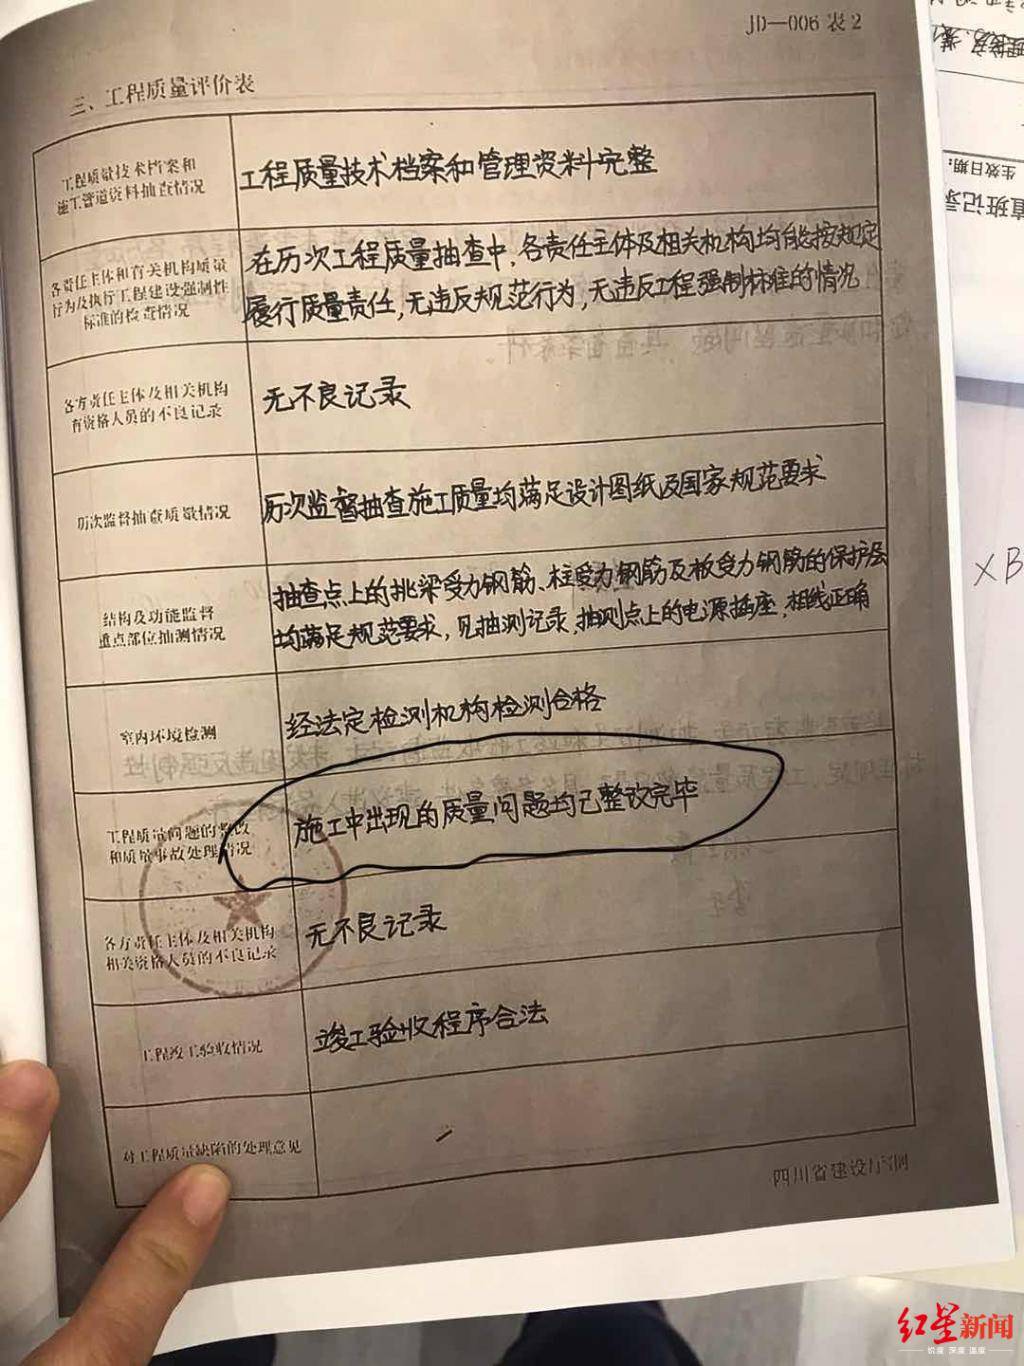 JD—006 表2
三、工程质量评价表
工程质量技术档案和
施工管道资料抽查情况
工程质量技术档案和管理资料完整
各责任主体和有关机构质量
行为及执行工程建设强制性
标准的检查情况
在历次工程质量抽查中,各责任主体及相关机构均能按规定
履行质量责任,无违反规范行为,无违反工程强制标准的情况
各方责任主体及相关机构
有资格人员的不良记录
无不良记录
历次监督抽查质量情况
历次监督抽查施工质量均满足设计图纸及国家规范要求
结构及功能监督
重点部位抽测情况
抽查点上的挑梁受力钢筋、柱受力钢筋及板受力钢筋的保护层
均满足规范要求,见抽测记录,抽测点上的电源插座,相线正确
室内环境检测
经法定检测机构检测合格
工程质量问题的整改
和质量事故处理情况
施工中出现的质量问题均已整改完毕
各方责任主体及相关机构
相关资格人员的不良记录
无不良记录
工程竣工验收情况
竣工验收程序合法
对工程质量缺陷的处理意见
四川省建设厅制
生效日期:
值班记录
×B
红星新闻
锐度 深度 温度